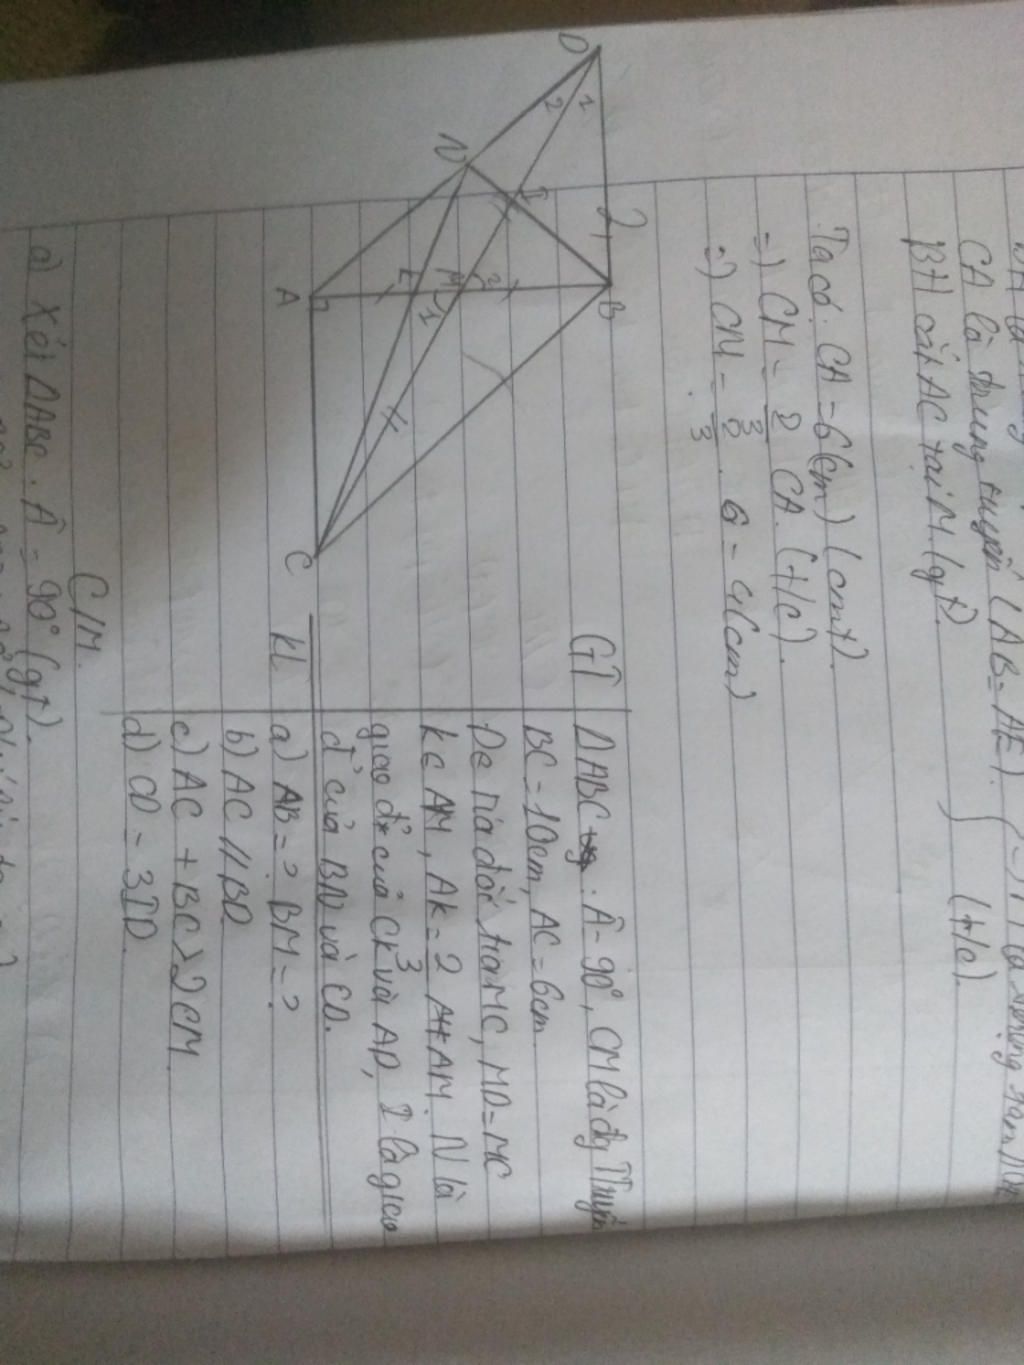 CA là trung tuyến (AB = AE).
BH cắt AC tại M (gt).
(t/c).
Ta có: CA = 6(cm) (cmt).
=) CM = 2/3 CA. (t/c).
=) CM = 2/3 . 6 = 4(cm)
D
1
2
N
I
B
M
2
1
A
C
GT
ΔABC : Â = 90°, CM là đg Tuyến
BC = 10cm, AC = 6cm
De tia đối tia MC, MD = MC
K ∈ AM, AK = 2/3 AM. N là
giao đ² của CK và AD, I là giao
đ² của BN và CD.
KL
a) AB = ? BM = ?
b) AC // BD
c) AC + BC > 2CM
d) CD = 3ID.
C/M.
a) Xét ΔABC. Â = 90° (gt).